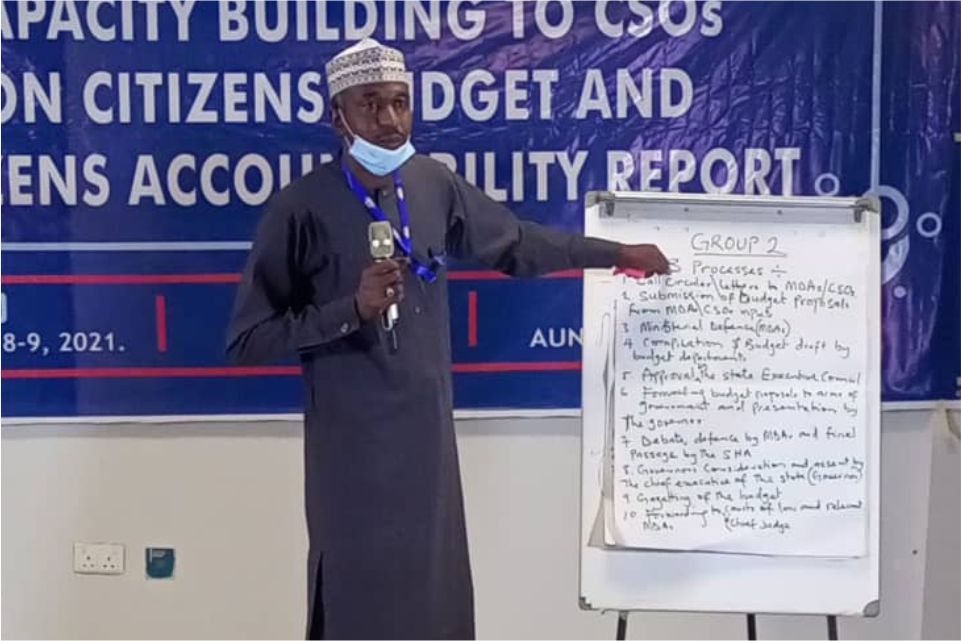 APACITY BUILDING TO CSOs
ON CITIZENS BUDGET AND
ZENS ACCOU BILITY REPORT
8-9, 2021.
AUN
GROUP 2
S Processes ÷
1. Call circular\letters to MDAs/CSOs
2. Submission of budget proposals
from MDAs\CSOs inputs
3 Ministerial Defence(MDAs)
4. Compilation & Budget draft by
budget departments
5. Approval by the state Executive Council
6. Forwarding budget proposals to arms of
government and presentation by
The governor
7. Debate, defence by MDAs and final
passage by the SHA
8. Governors consideration and assent by
The chief executive of the state (Governor)
9 Gazetting of the budget
10. Forwarding to courts of law and relevant
MDAs (Chief Judge